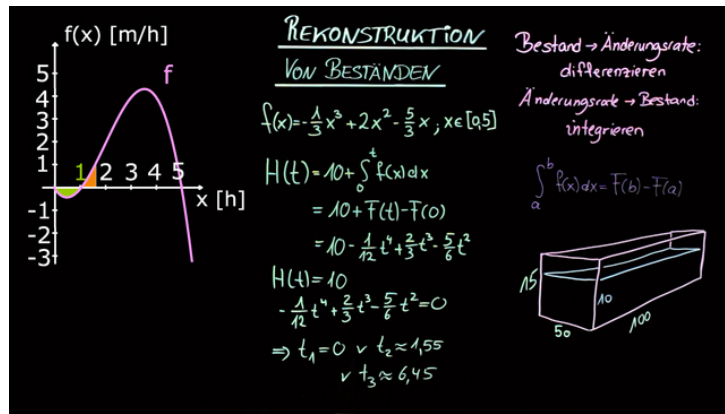 f(x) [m/h]
f
5
4
3
2
1
-1
-2
-3
1 2 3 4 5
x [h]
REKONSTRUKTION
VON BESTÄNDEN
f(x)=-1/3x³+2x²-5/3x ; x∈[0,5]
H(t)=10+∫₀ᵗf(x)dx
=10+F(t)-F(0)
=10-1/12t⁴+2/3t³-5/6t²
H(t)=10
-1/12t⁴+2/3t³-5/6t²=0
⇒ t₁=0 ∨ t₂≈1,55
∨ t₃≈6,45
Bestand→Änderungsrate:
differenzieren
Änderungsrate→Bestand:
integrieren
∫ₐᵇf(x)dx=F(b)-F(a)
15
10
50
100